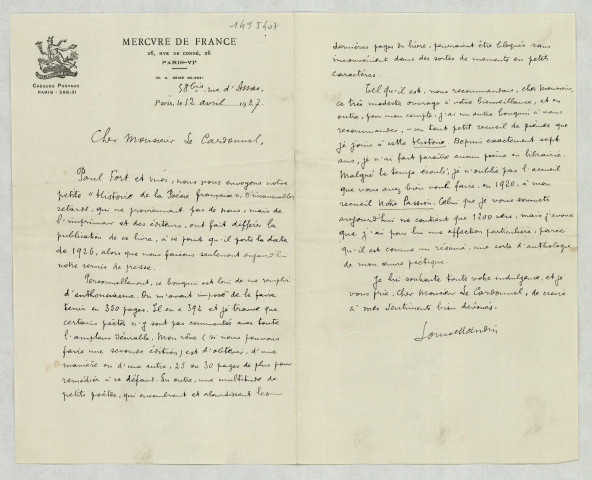 1495408
MERCVRE DE FRANCE
26, RVE DE CONDÉ, 26
PARIS-VIe
R. C. SEINE 80.493
CHÈQUES POSTAUX
PARIS - 259.31
58bis rue d'Assas,
Paris, le 12 avril 1927.
Cher Monsieur Le Cardonnel,
Paul Fort et moi, nous vous envoyons notre
petite "Histoire de la Poésie française". D'innombrables
retards, qui ne proviennent pas de nous, mais de
l'imprimeur et des éditeurs, ont fait différer la
publication de ce livre, à ce point qu'il porte la date
de 1926, alors que nous faisons seulement aujourd'hui
notre service de presse.
Personnellement, ce bouquin est loin de me remplir
d'enthousiasme. On m'avait imposé de le faire
tenir en 350 pages. Il en a 392 et je trouve que
certains poètes n'y sont pas commentés avec toute
l'ampleur désirable. Mon rêve (si nous pouvons
faire une seconde édition) est d'obtenir, d'une
manière ou d'une autre, 25 ou 30 pages de plus pour
remédier à ce défaut. En outre, une multitude de
petits poètes, qui encombrent et alourdissent les
dernières pages du livre, pourraient être bloqués sans
inconvénient dans des sortes de mementos en petits
caractères.
Tel qu'il est, nous recommandons, cher Monsieur,
ce très modeste ouvrage à votre bienveillance, et en
outre, pour mon compte, j'ai un autre bouquin à vous
recommander, – un tout petit recueil de poèmes que
je joins à cette Histoire. Depuis exactement sept
ans, je n'ai fait paraître aucun poème en librairie.
Malgré le temps écoulé, je n'oublie pas l'accueil
que vous avez bien voulu faire, en 1920, à mon
recueil Notre Passion. Celui que je vous soumets
aujourd'hui ne contient que 1200 vers, mais j'avoue
que j'ai pour lui une affection particulière, parce
qu'il est comme un résumé, une sorte d'anthologie
de mon œuvre poétique.
Je lui souhaite toute votre indulgence, et je
vous prie, cher Monsieur Le Cardonnel, de croire
à mes sentiments bien dévoués.
Louis Mandin